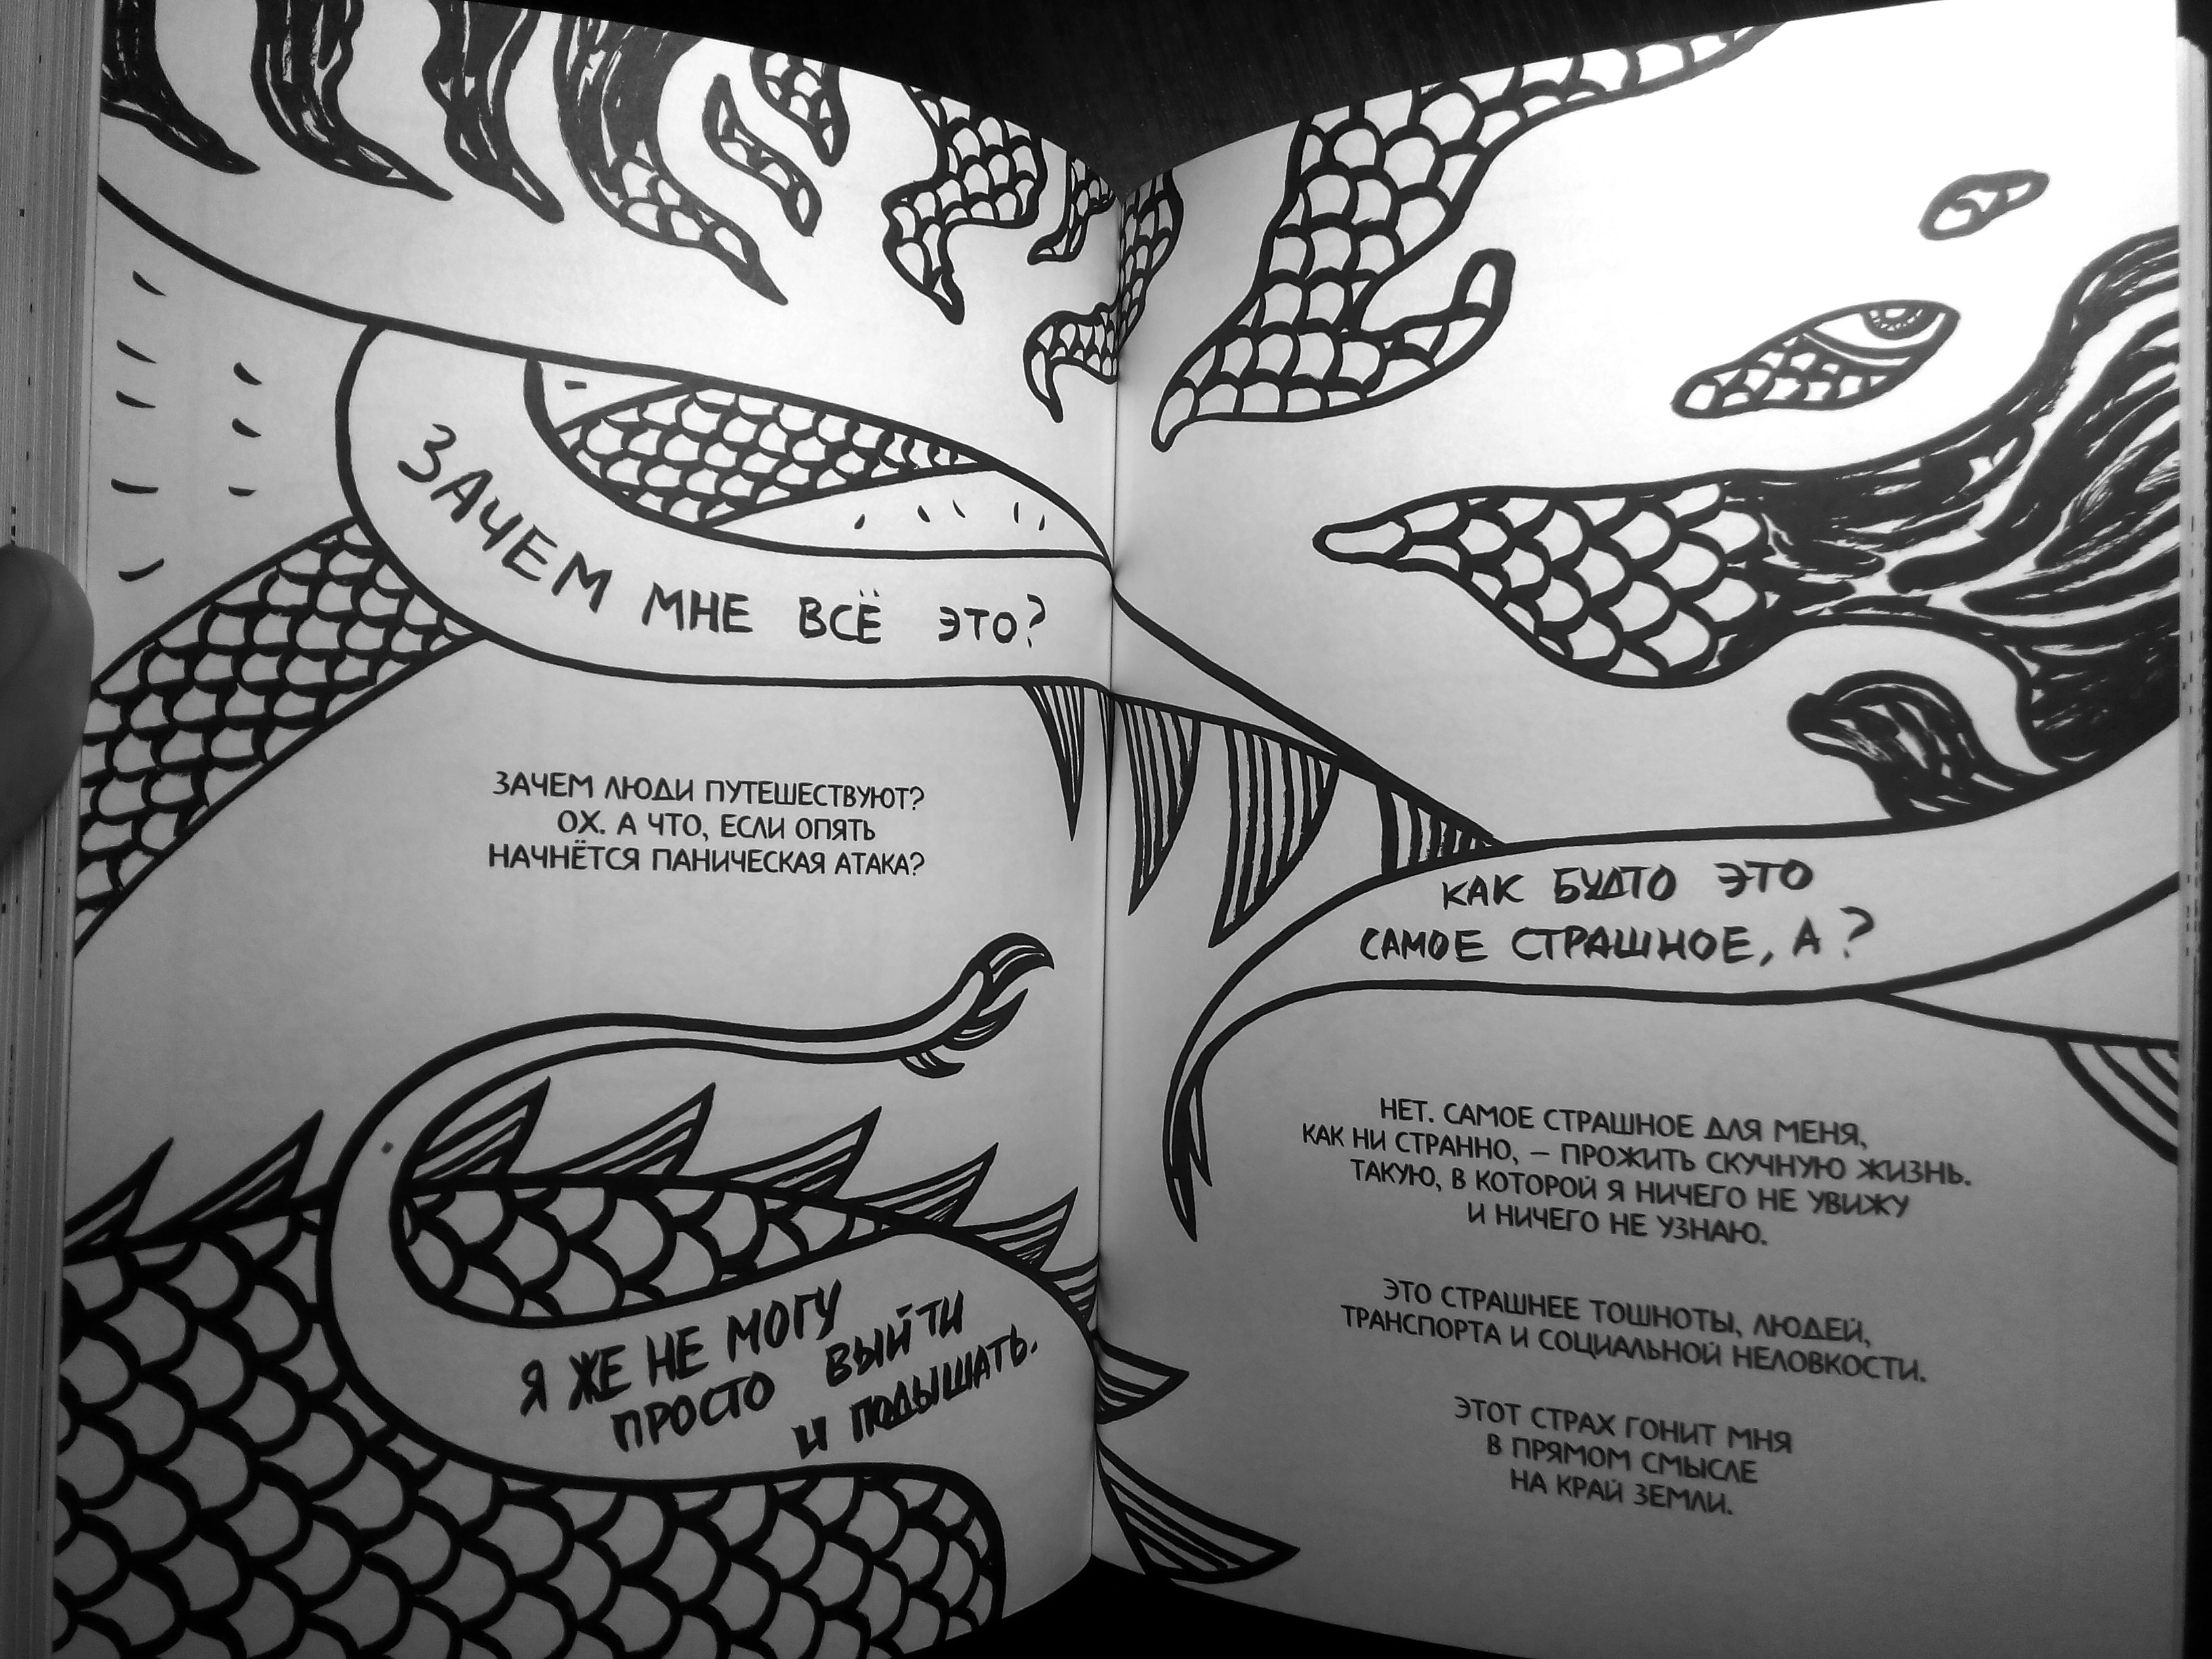 ЗАЧЕМ МНЕ ВСЁ ЭТО?
ЗАЧЕМ ЛЮДИ ПУТЕШЕСТВУЮТ?
ОХ. А ЧТО, ЕСЛИ ОПЯТЬ
НАЧНЁТСЯ ПАНИЧЕСКАЯ АТАКА?
Я ЖЕ НЕ МОГУ
ПРОСТО ВЫЙТИ
И ПОДЫШАТЬ.
КАК БУДТО ЭТО
САМОЕ СТРАШНОЕ, А?
НЕТ. САМОЕ СТРАШНОЕ ДЛЯ МЕНЯ,
КАК НИ СТРАННО, – ПРОЖИТЬ СКУЧНУЮ ЖИЗНЬ.
ТАКУЮ, В КОТОРОЙ Я НИЧЕГО НЕ УВИЖУ
И НИЧЕГО НЕ УЗНАЮ.
ЭТО СТРАШНЕЕ ТОШНОТЫ, ЛЮДЕЙ,
ТРАНСПОРТА И СОЦИАЛЬНОЙ НЕЛОВКОСТИ.
ЭТОТ СТРАХ ГОНИТ МНЯ
В ПРЯМОМ СМЫСЛЕ
НА КРАЙ ЗЕМЛИ.